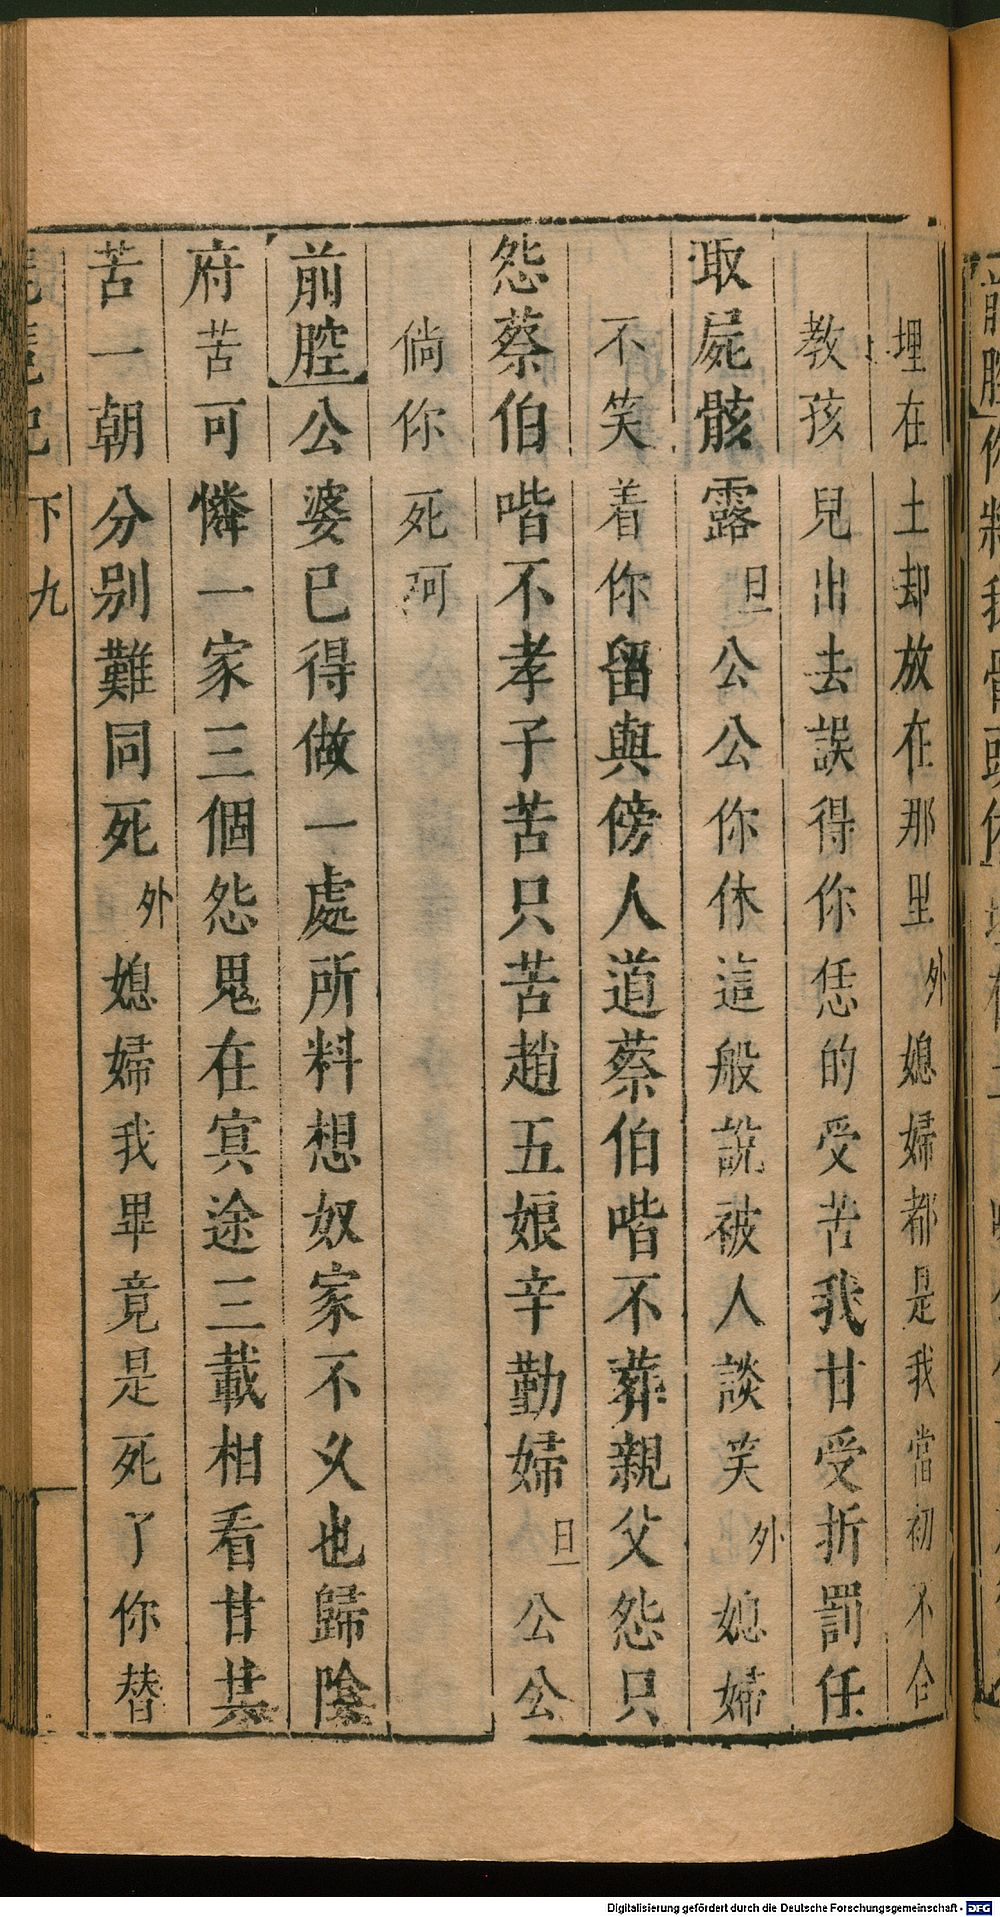 埋在土却放在那里外媳婦都是我當初不合
教孩兒出去誤得你恁的受苦我甘受折罰任
取屍骸露旦公公你休這般說被人談笑外媳婦
不笑着你留與傍人道蔡伯喈不葬親父怨只
怨蔡伯喈不孝子苦只苦趙五娘辛勤婦旦公公
倘你死呵
前腔公婆已得做一處所料想奴家不久也歸陰
府苦可憐一家三個怨鬼在冥途三載相看甘共
苦一朝分别難同死外媳婦我畢竟是死了你替
琵琶記 下 九
Digitalisierung gefördert durch die Deutsche Forschungsgemeinschaft - DFG